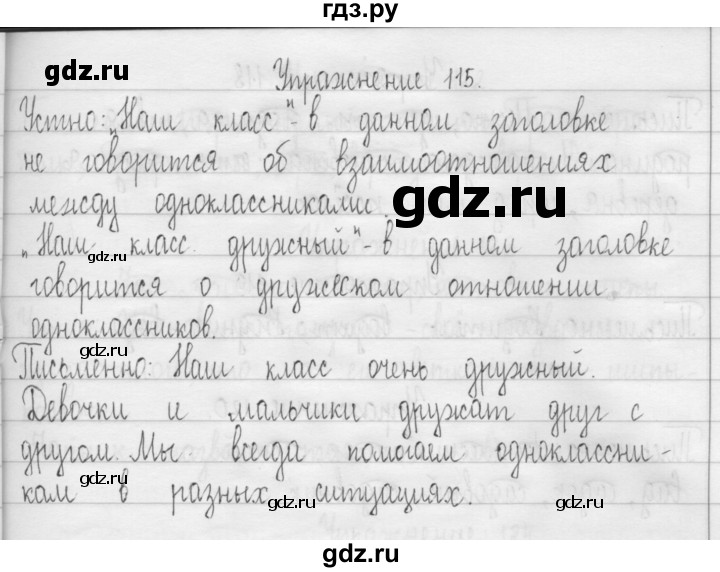 гдз.ру
gdz.ru
Упражнение 115.
Устно: „Наш класс" в данном заголовке
не говорится об взаимоотношениях
между одноклассниками.
gdz.ru
gdz.ru
„Наш класс дружный"- в данном заголовке
говорится о дружеском отношении
gdz.ru
одноклассников.
gdz.ru
Письменно: Наш класс очень дружный.
Девочки и мальчики дружат друг с
gdz.ru
другом. Мы всегда помогаем одноклассни-
gdz.ru
gdz.ru
кам в разных ситуациях.
gdz.ru
gdz.ru
gdz.ru